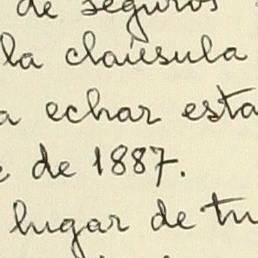 de seguros
la claúsula
a echar esta
de 1887.
lugar de tu